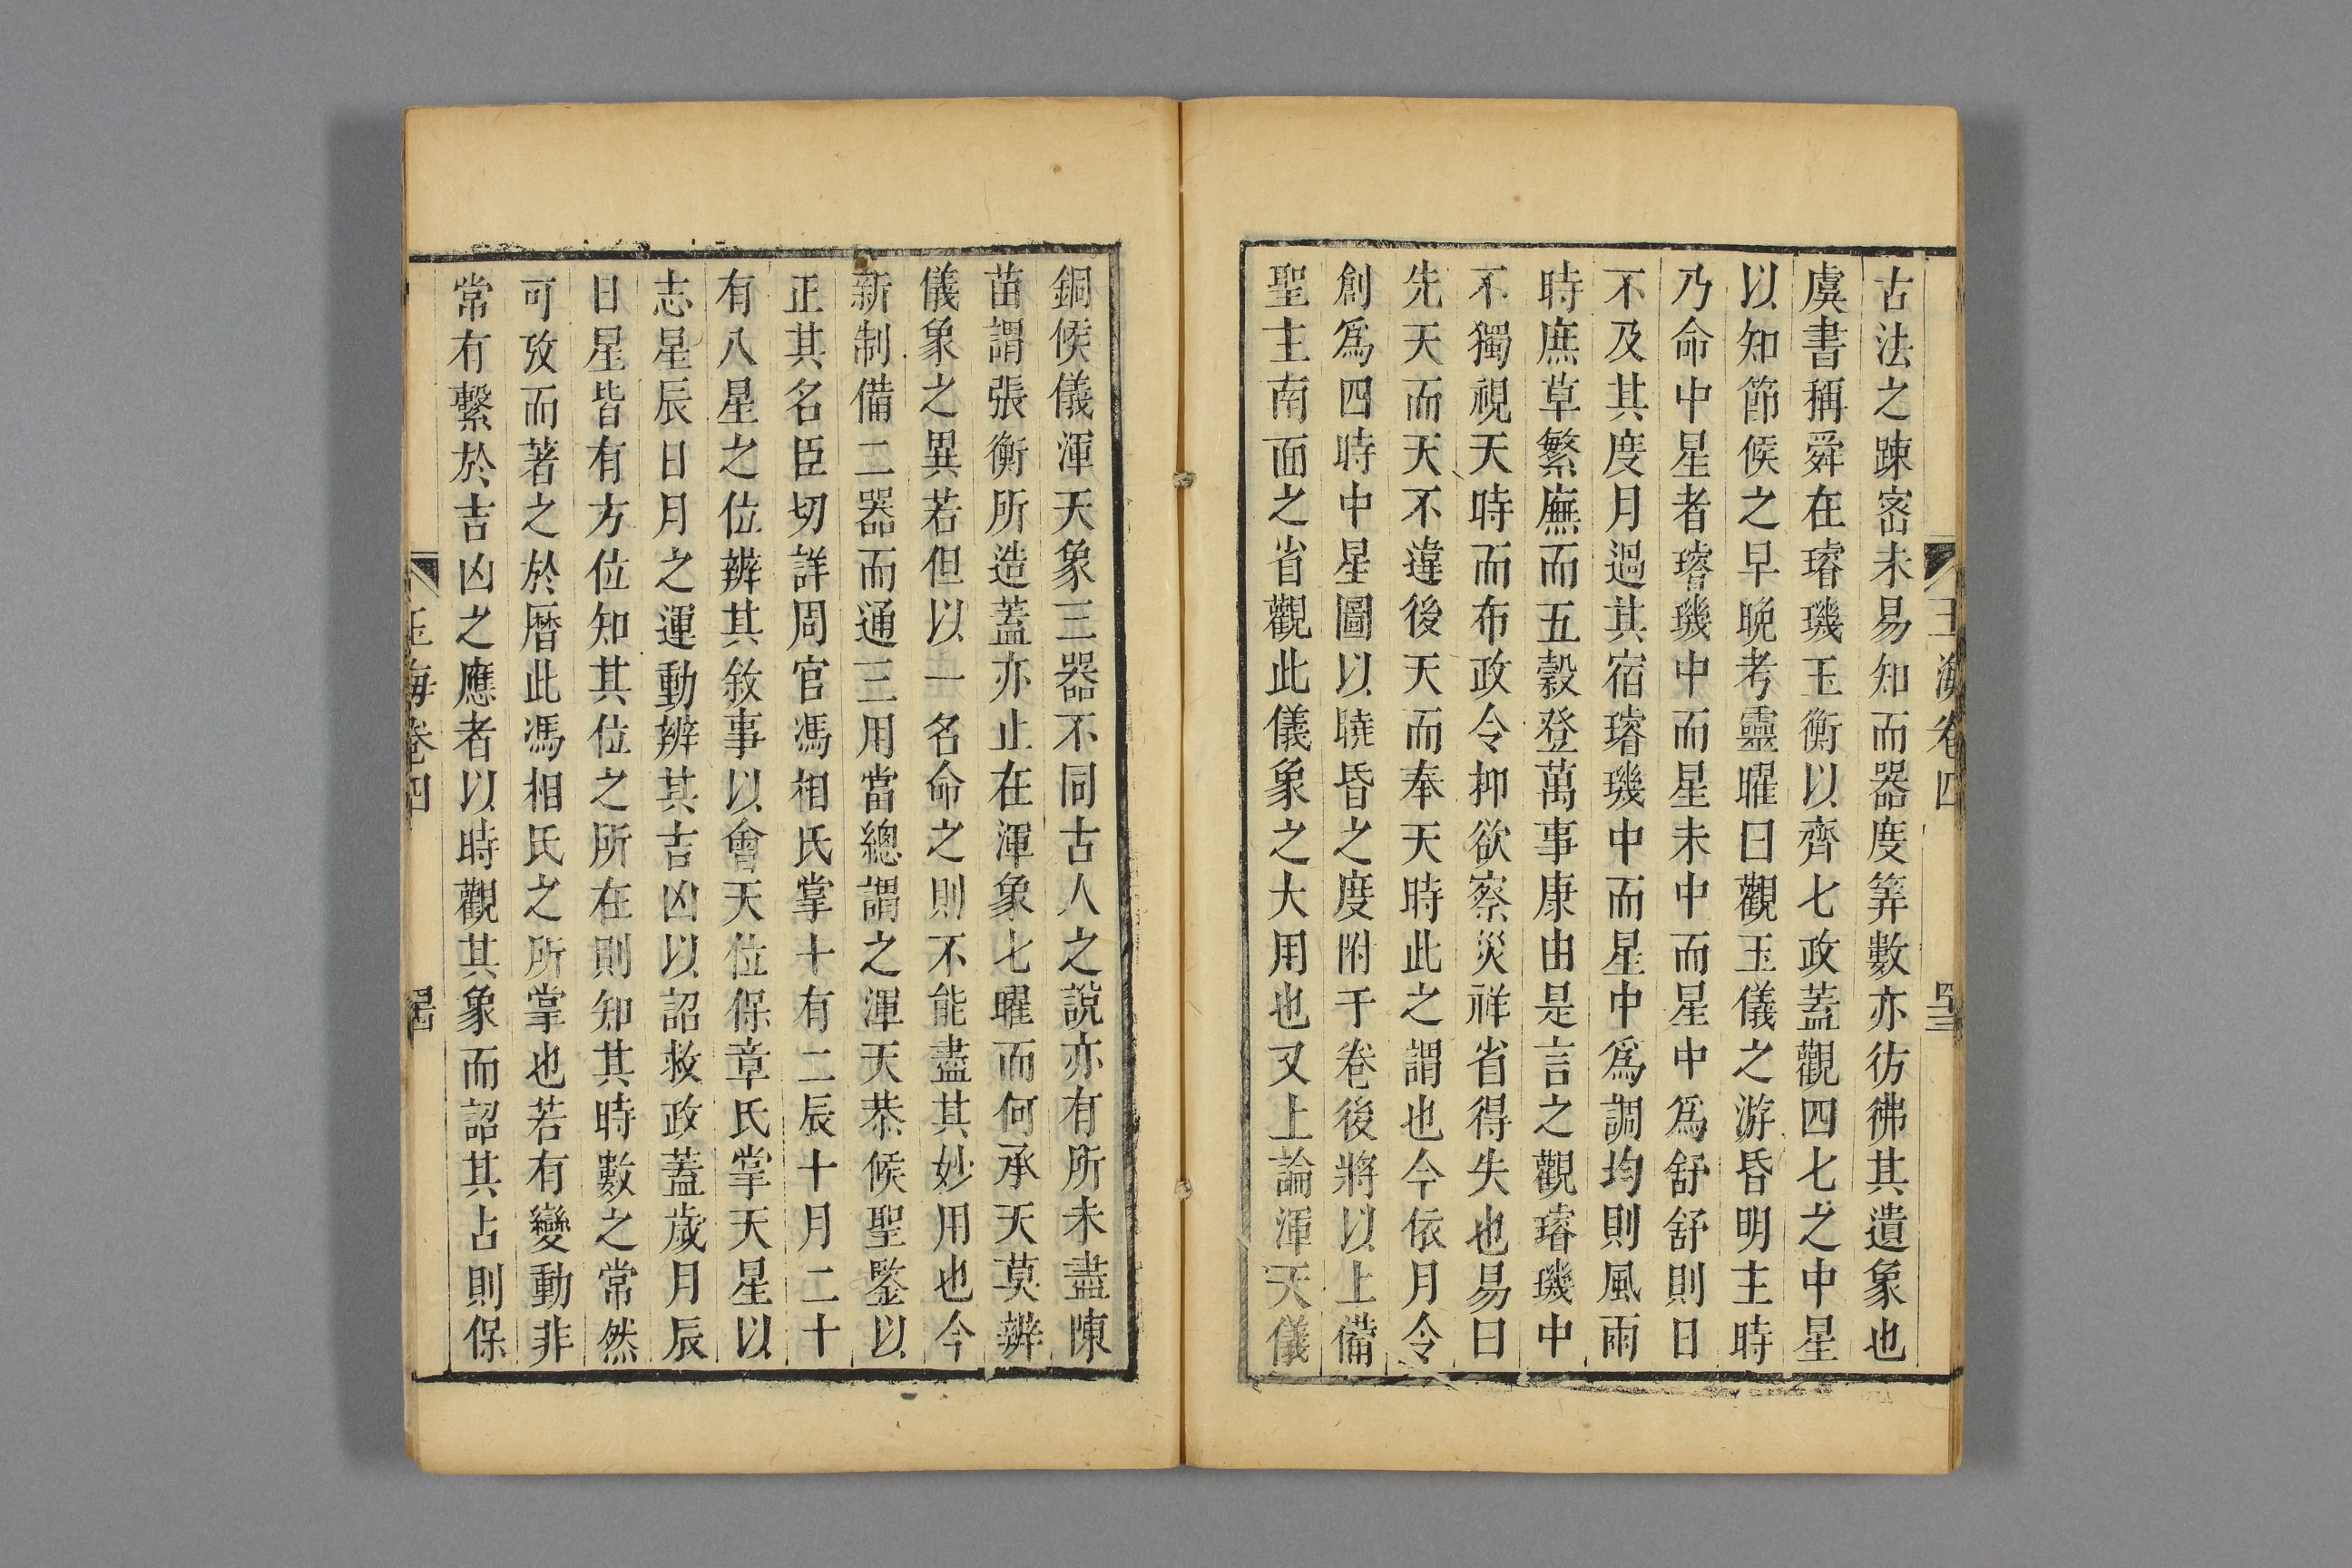 玉海卷四
古法之踈宻未易知而器度筭數亦彷彿其遺象也
虞書稱舜在璿璣玉衡以齊七政蓋觀四七之中星
以知節候之早晚考靈曜曰觀玉儀之游昏明主時
乃命中星者璿璣中而星未中而星中爲舒舒則日
不及其度月過其宿璿璣中而星中爲調均則風雨
時庶草繁廡而五穀登萬事康由是言之觀璿璣中
不獨視天時而布政令抑欲察災祥省得失也易曰
先天而天不違後天而奉天時此之謂也今依月令
創爲四時中星圖以曉昏之度附于卷後將以上備
聖主南面之省觀此儀象之大用也又上論渾天儀
銅候儀渾天象三器不同古人之說亦有所未盡陳
苗謂張衡所造蓋亦止在渾象七曜而何承天莫辨
儀象之異若但以一名命之則不能盡其妙用也今
新制備二器而通三用當總謂之渾天恭候聖鑒以
正其名臣切詳周官馮相氏掌十有二辰十月二十
有八星之位辨其敘事以會天位保章氏掌天星以
志星辰日月之運動辨其吉凶以詔救政蓋歲月辰
日星皆有方位知其位之所在則知其時數之常然
可攷而著之於曆此馮相氏之所掌也若有變動非
常有繫於吉凶之應者以時觀其象而詔其占則保
玉海卷四